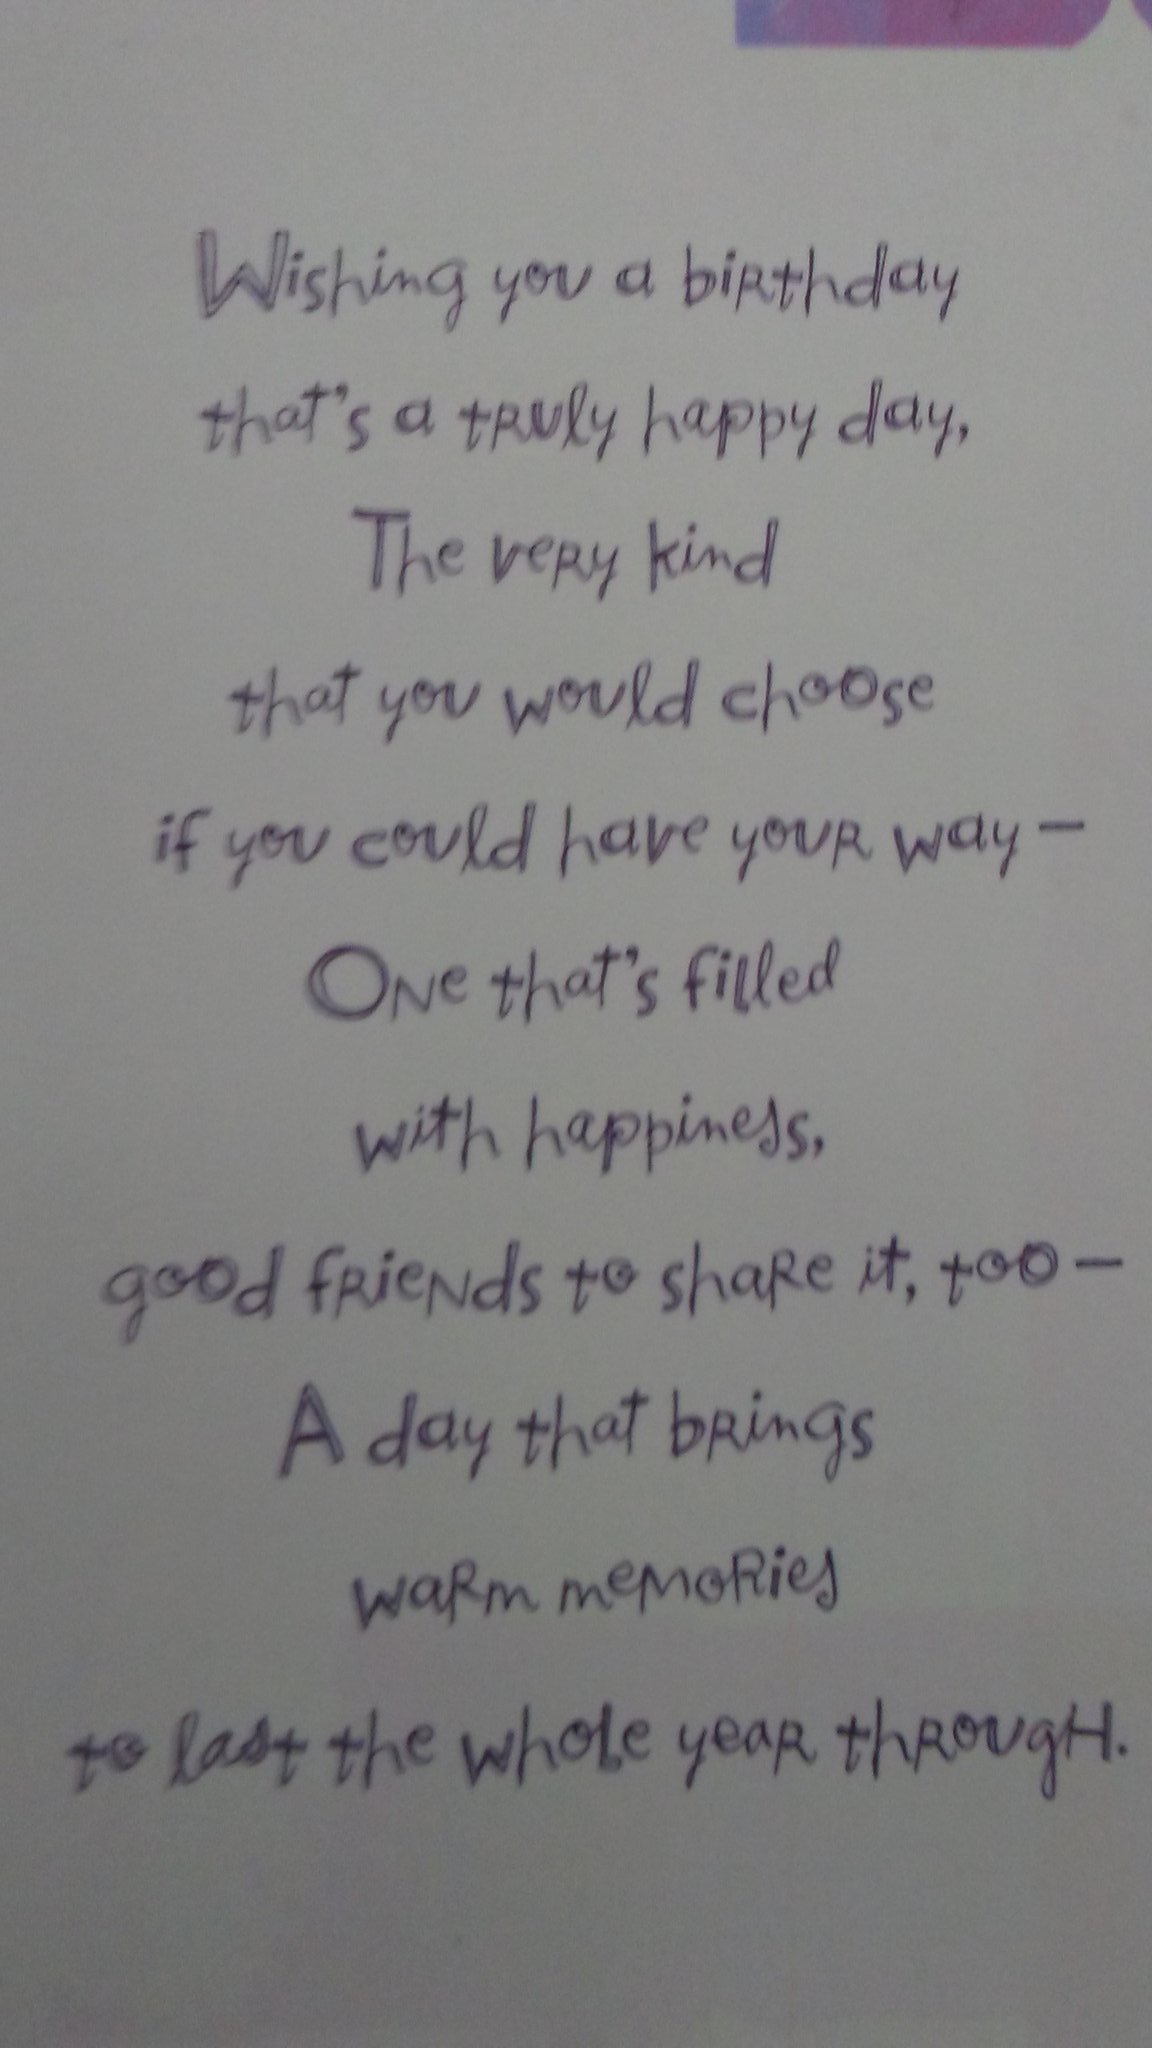 Wishing you a birthday
that's a truly happy day,
The very kind
that you would choose
if you could have your way —
One that's filled
with happiness,
good friends to share it, too —
A day that brings
warm memories
to last the whole year through.